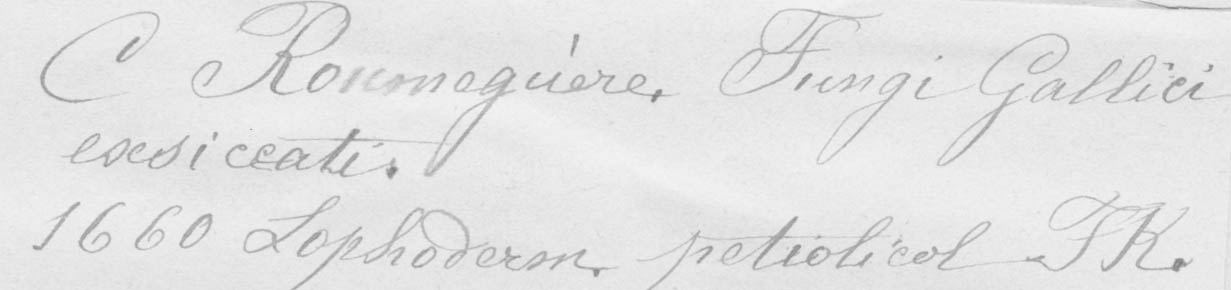 C Roumeguère. Fungi Gallici
exsiccati.
1660 Lophoderm. petiolicol FK.